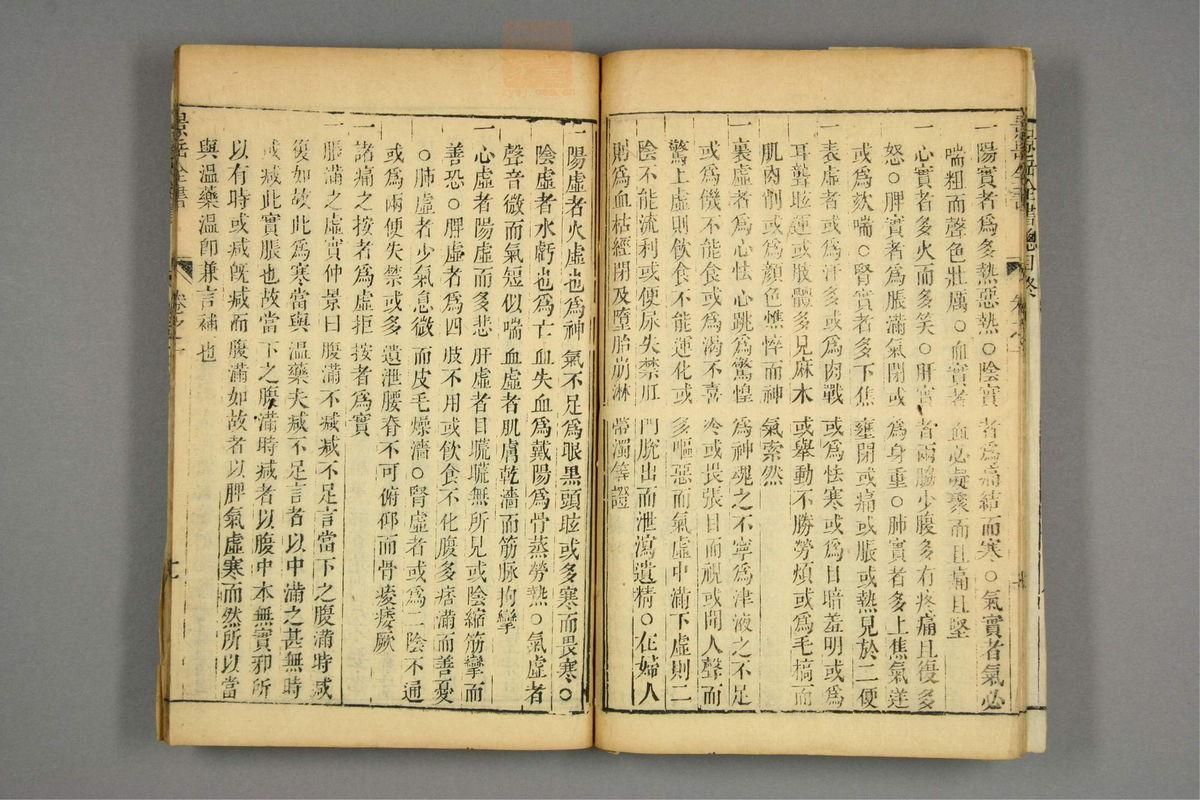 一陽實者爲多熱惡熱○陰實者爲痛結而寒○氣實者氣必
喘粗而聲色壯厲○血實者血必凝聚而且痛且堅
一心實者多火而多笑○肝實者兩脇少腹多有疼痛且復多
怒○脾實者爲脹滿氣閉或爲身重○肺實者多上焦氣逆
或爲欬喘○腎實者多下焦壅閉或痛或脹或熱見於二便
一表虛者或爲汗多或爲肉戰或爲怯寒或爲目暗羞明或爲
耳聾眩運或肢體多見麻木或舉動不勝勞煩或爲毛槁而
肌肉削或爲顏色憔悴而神氣索然
一裏虛者爲心怯心跳爲驚惶爲神魂之不寧爲津液之不足
或爲饑不能食或爲渴不喜冷或畏張目而視或聞人聲而
驚上虛則飲食不能運化或多嘔惡而氣虛中滿下虛則二
陰不能流利或便尿失禁肛門脫出而泄瀉遺精○在婦人
則爲血枯經閉及墮胎崩淋帶濁等證
一陽虛者火虛也爲神氣不足爲眼黑頭眩或多寒而畏寒○
陰虛者水虧也爲亡血失血爲戴陽爲骨蒸勞熱○氣虛者
聲音微而氣短似喘血虛者肌膚乾濇而筋脉拘攣
一心虛者陽虛而多悲肝虛者目𥆨𥆨無所見或陰縮筋攣而
善恐○脾虛者爲四肢不用或飲食不化腹多痞滿而善憂
○肺虛者少氣息微而皮毛燥濇○腎虛者或爲二陰不通
或爲兩便失禁或多遺泄腰脊不可俯仰而骨痠痿厥
一諸痛之按者爲虛拒按者爲實
一脹滿之虛實仲景曰腹滿不减减不足言當下之腹滿時减
復如故此爲寒當與溫藥夫减不足言者以中滿之甚無時
或减此實脹也故當下之腹滿時减者以腹中本無實邪所
以有時或减旣减而腹滿如故者以脾氣虛寒而然所以當
與溫藥溫卽兼言補也
景岳全書
卷之一